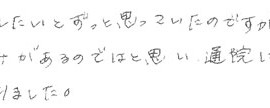 したいとずっと思っていたのですが
さがあるのではと思い、通院し
りました。